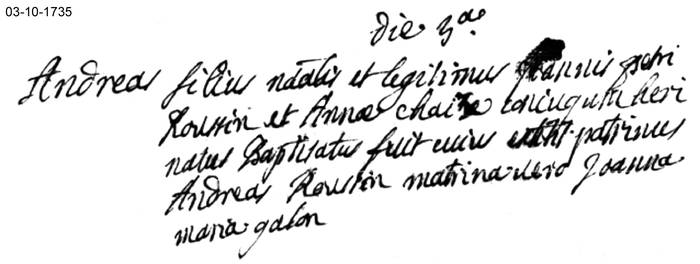 03-10-1735
die 3a
Andreas filius natalis et legitimus Joannis petri
Roussin et Annæ chaize coniugum heri
natus Baptisatus fuit cuius patrinus
Andreas Roussin matrina vero Joanna
maria galon